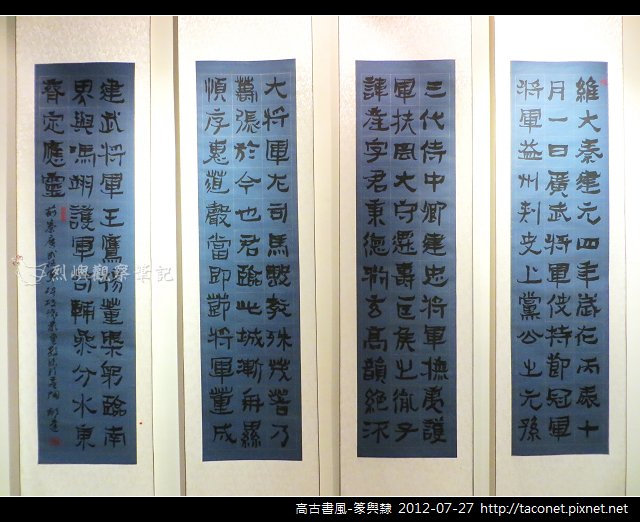 維大秦建元四年歲在丙辰十
月一日廣武將軍使持節冠軍
將軍益州刺史上黨公之元孫
三代侍中卿建忠將軍撫夷護
軍扶風大守遷壽匡侯之胤子
諱產字君秉德衝玄高韻絕
大將軍左司馬教殊若乃
萬張於今也君臨此城漸再累
順存惠道聲當即鄧將軍董成
建武將軍王鷹揚董躬臨南
界與馮翊護軍苟輔參分水東
脊定應靈
烈嶼觀察筆記
高古書風-篆與隸 2012-07-27 http://taconet.pixnet.net